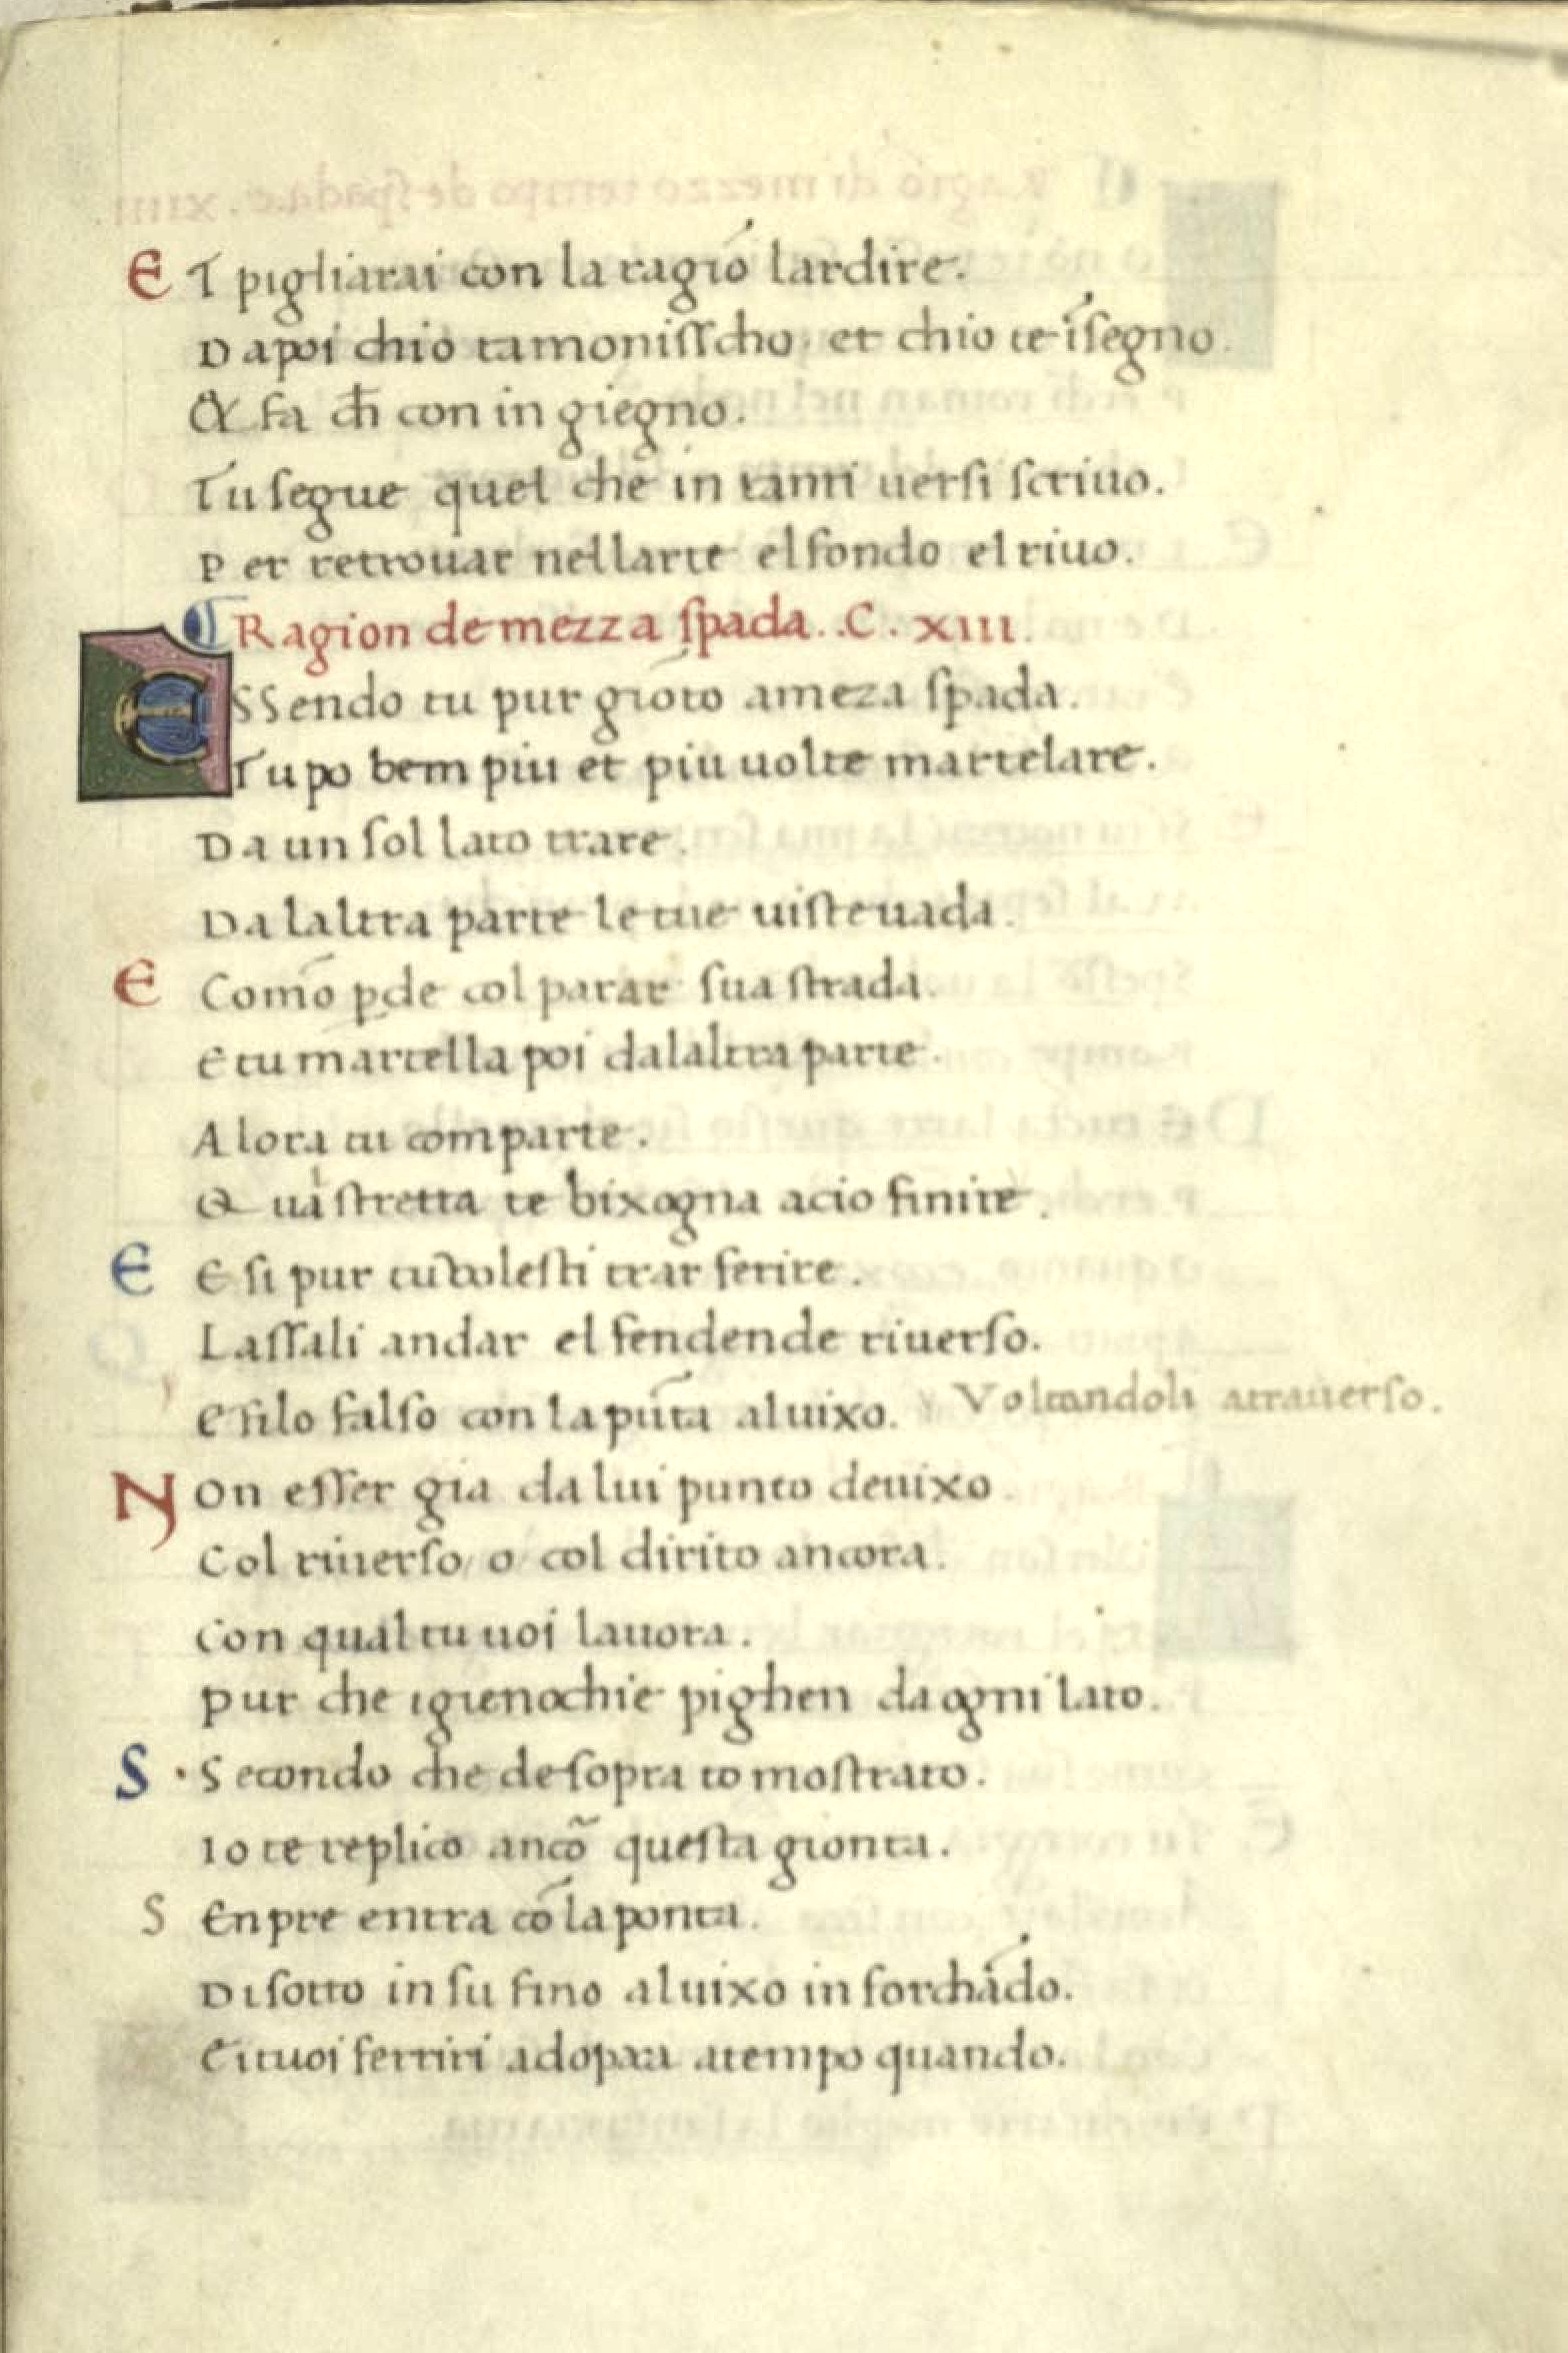 ET pigliarai con la ragiō lardire.
Dapoi chio tamoniſſcho, et chio te īſegno.
Et fa ch̄ con in giegno.
Tu ſegue quel che in tanti uerſi ſcriuo.
Per retrouar nellarte el fondo el riuo.
Ragion de mezza ſpada. .C. XIII.
ESSendo tu pur giōto ameza ſpada.
Tu po bem piu et piu uolte martelare.
Da un ſol lato trare.
Da laltra parte le tue uiſte uada.
E Comō ꝑde col parar ſua ſtrada.
e tu martella poi dalaltra parte.
Alora tu comparte.
Qual ſtretta te bixogna acio finire.
E E ſi pur tu voleſti trar ferire.
Laſſali andar el fendende riuerſo.
e filo falſo con la pūta al uixo. Voltandoli atrauerſo.
Non eſſer gia da lui punto deuixo.
Col riuerſo, o col dirito ancora.
Con qual tu uoi lauora.
Pur che igienochie pighen da ogni lato.
S ·Secondo che de ſopra to moſtrato.
Io te replico ancō queſta gionta.
S Enpre entra cō la ponta.
Di ſotto in ſu fino al uixo in forchādo.
E i tuoi ferriri adopra atempo quando.